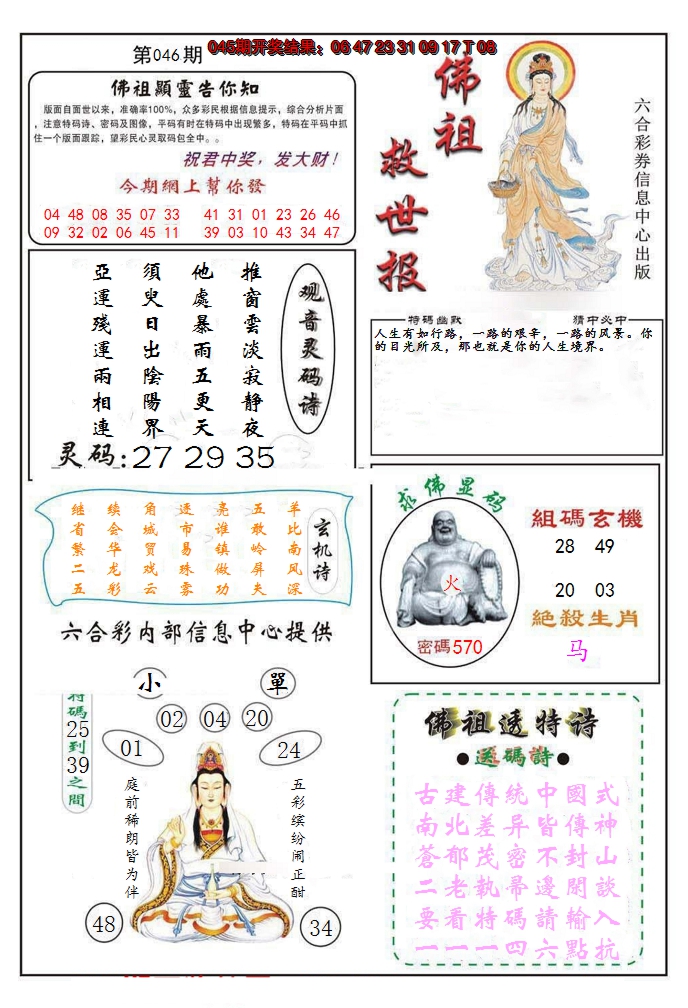 045期开奖结果：06 47 23 31 09 17 T 08
第046期
佛祖顯靈告你知
版面自面世以来，准确率100%，众多彩民根据信息提示，综合分析片面
，注意特码诗、密码及图像，平码有时在特码中出现繁多，特码在平码中抓
住一个版面跟踪，望彩民心灵取码包全中。。
祝君中奖，发大财！
今期網上幫你發
04 48 08 35 07 33 41 31 01 23 26 46
09 32 02 06 45 11 39 03 10 43 34 47
佛祖
救世报
六合彩券信息中心出版
观音灵码诗
推窗雲淡寂静夜
他處暴雨五更天
須臾日出陰陽界
亞運殘運兩相連
灵码:27 29 35
特碼幽默
猜中必中
人生有如行路，一路的艰辛，一路的风景。你
的目光所及，那也就是你的人生境界。
玄机诗
羊比南风深
五敢岭屏夫
亮谁镇做功
逐市易珠雾
角城贸戏云
续会华龙彩
继省繁二五
六合彩内部信息中心提供
求佛显码
火
密碼570
組碼玄機
28 49
20 03
絶殺生肖
马
小
單
特碼25到39之間
02 04 20
01
24
五彩缤纷闹正酣
庭前稀朗皆为伴
48
34
佛祖透特诗
●送碼詩●
古建傳統中國式
南北差异皆傳神
蒼郁茂密不封山
二老執帚邊閑談
要看特碼請輸入
一一一四六點抗